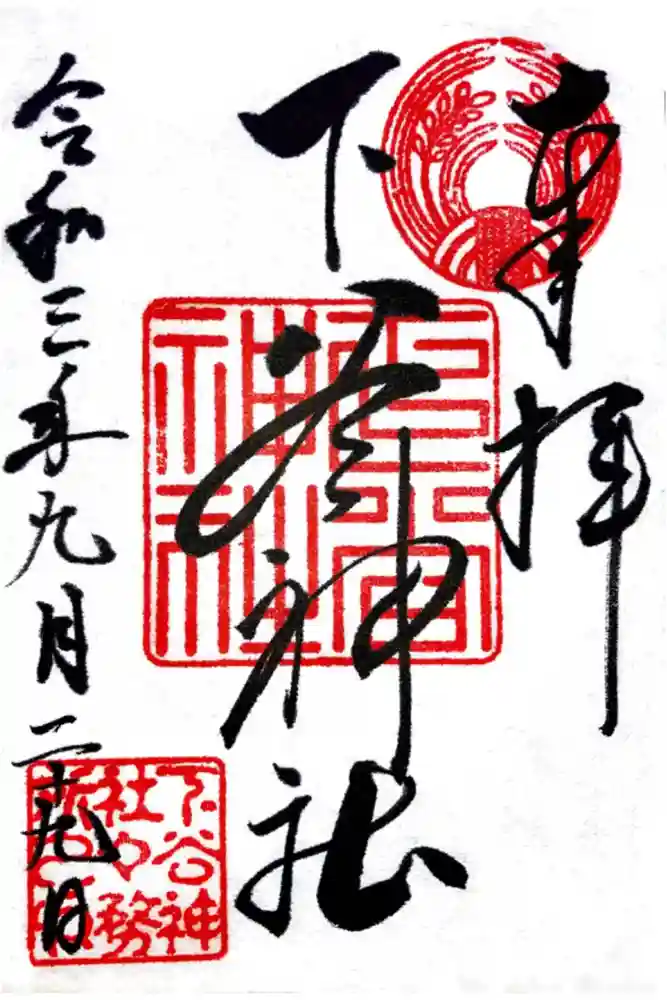 奉拝
下谷神社
令和三年九月二十九日
下谷神
社社務